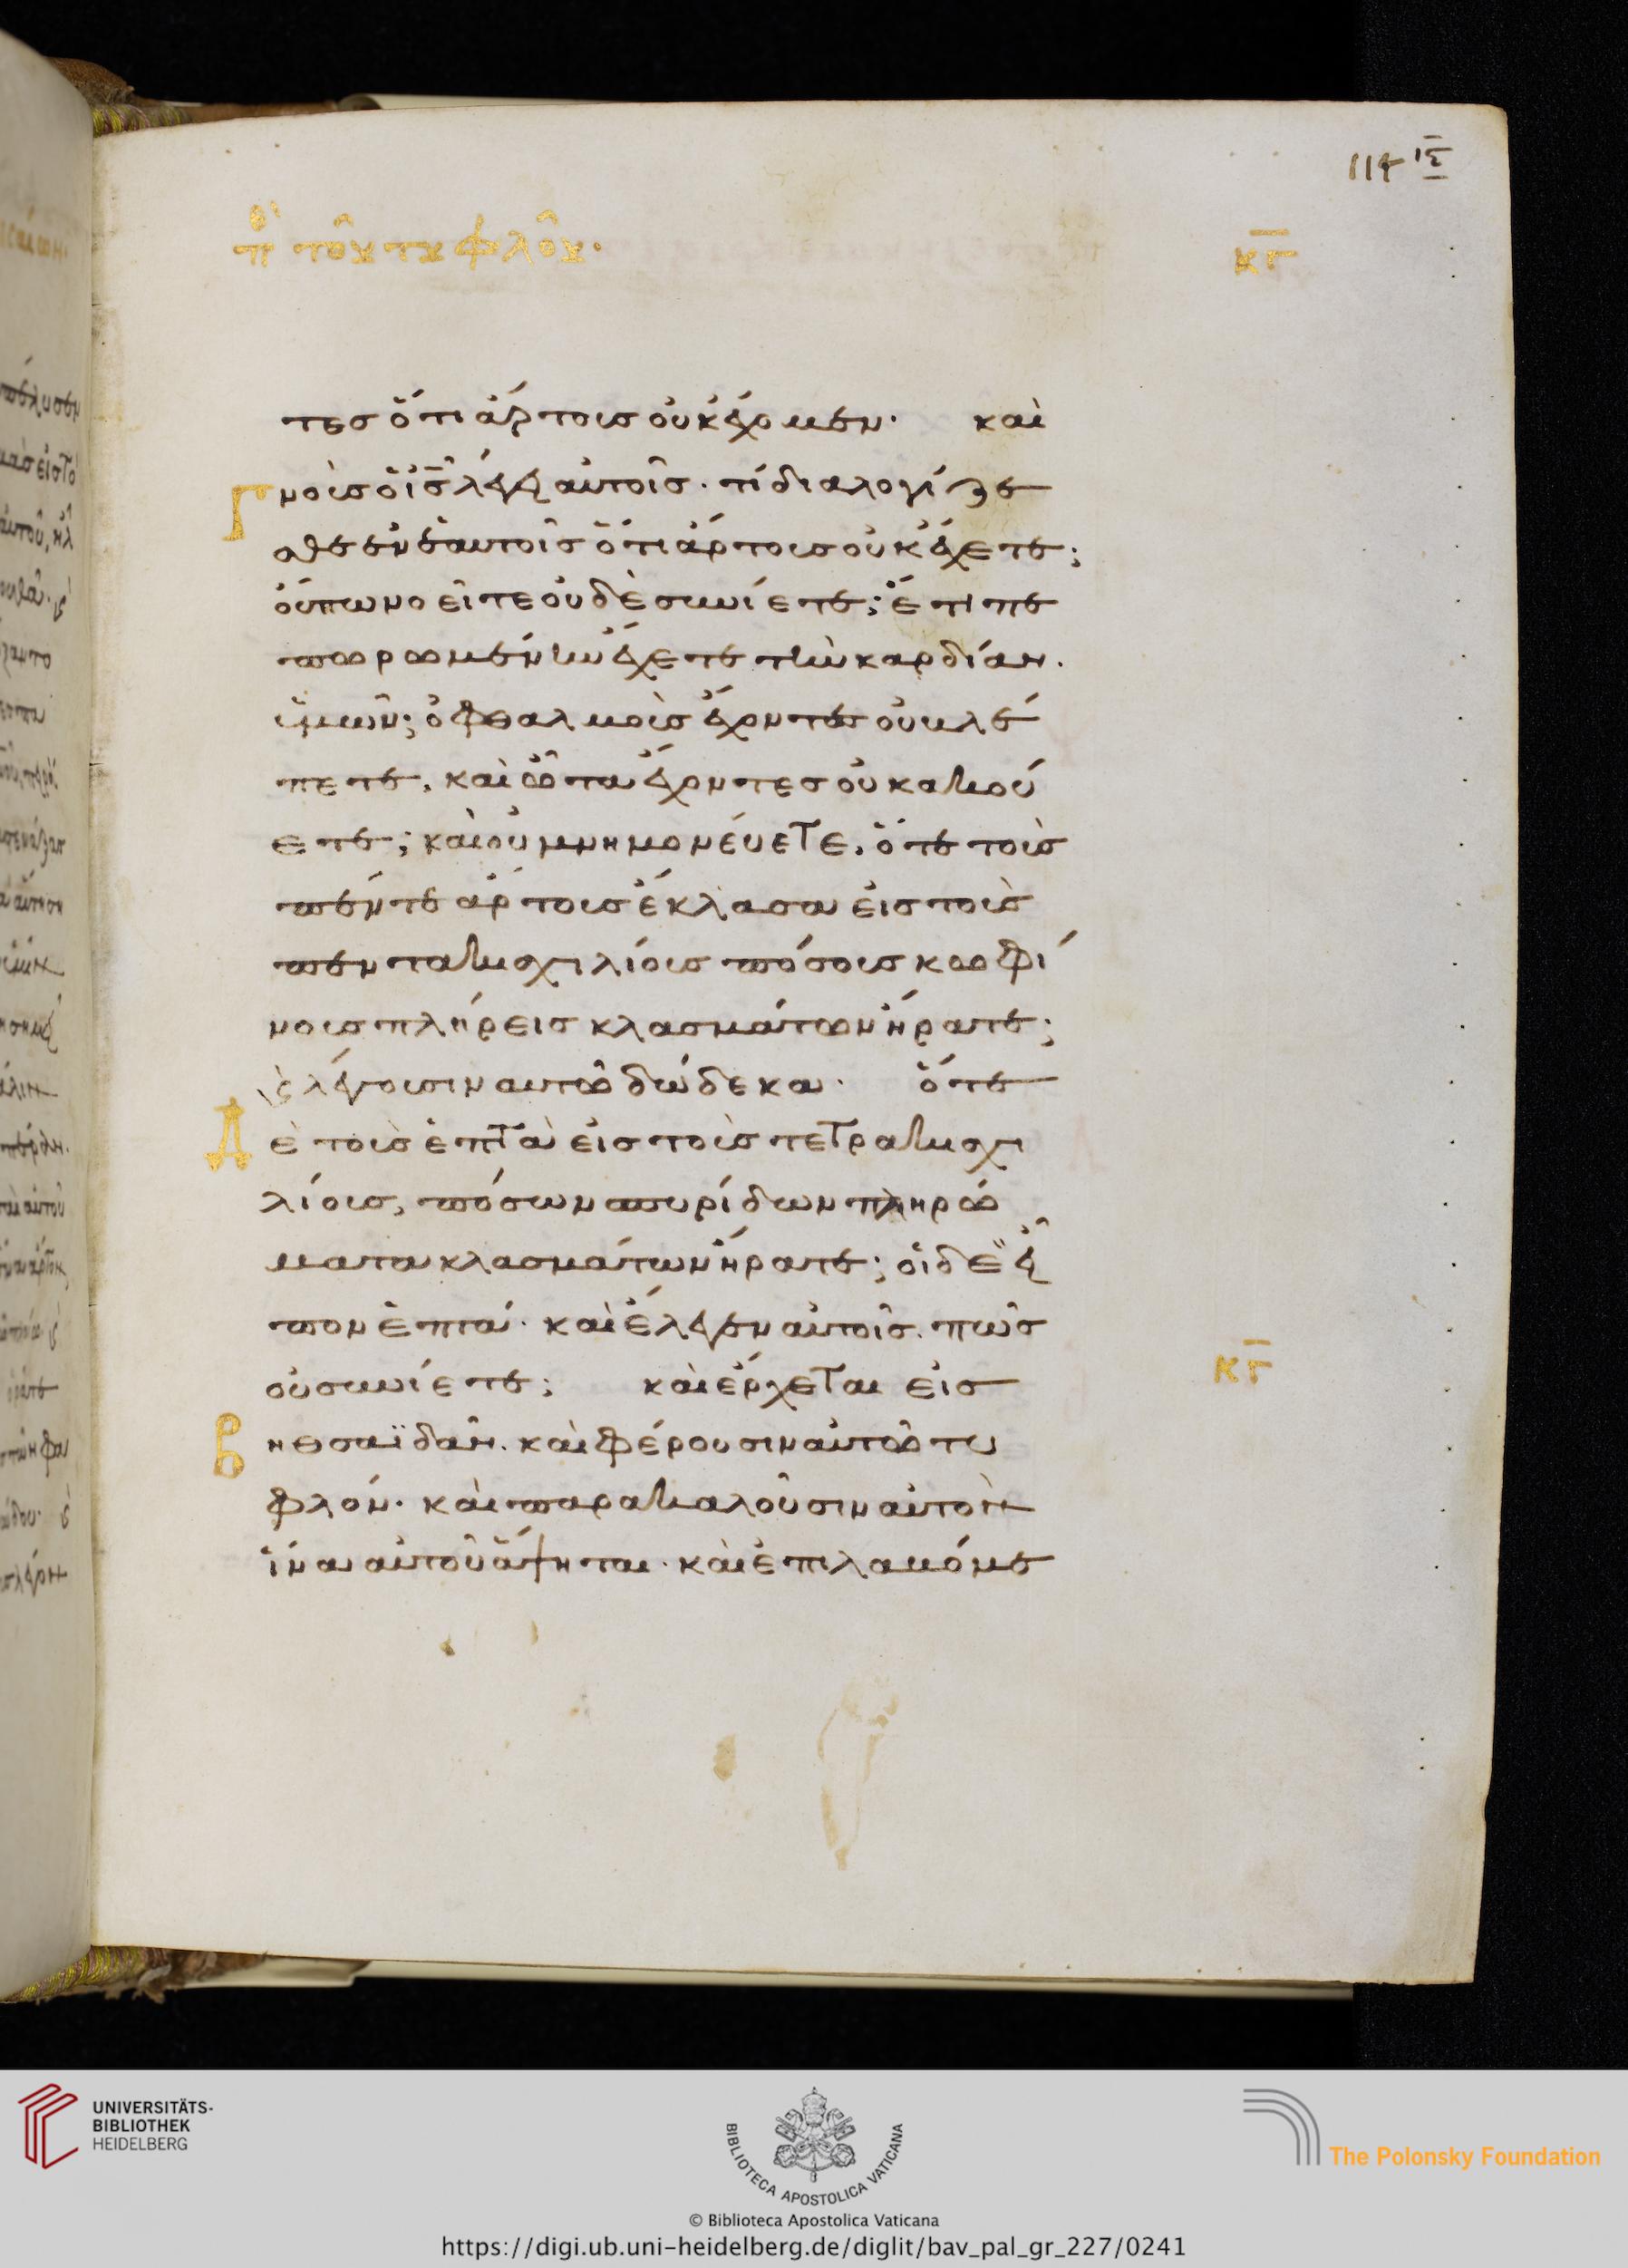 114 ιε
περὶ τοῦ τυφλοῦ.
κγ
τες ὅτι ἄρτους οὐκ ἔχομεν. καὶ
γνοὺς ὁ ις λέγει αὐτοῖς. τί διαλογίζε
σθε ἐν ἑαυτοῖς ὅτι ἄρτους οὐκ ἔχετε;
οὔπω νοεῖτε οὐδὲ συνίετε; ἔτι πε
πωρωμένην ἔχετε τὴν καρδίαν.
ὑμῶν; ὀφθαλμοὺς ἔχοντες οὐ βλέ
πετε, καὶ ὦτα ἔχοντες οὐκ ἀκού
ετε; καὶ οὐ μνημονεύετε, ὅτε τοὺς
πέντε ἄρτους ἔκλασα εἰς τοὺς
πεντακισχιλίους πόσους κωφί
νους πλήρεις κλασμάτων ἤρατε;
λέγουσιν αὐτῶ δώδεκα. ὅτε
Δὲ τοὺς ἑπτὰ εἰς τοὺς τετρακισχι
λίους, πόσων σπυρίδων πληρώ
ματα κλασμάτων ἤρατε; οἱ δὲ εἶ
πον ἑπτά. καὶ ἔλεγεν αὐτοῖς. πῶς
οὐ συνίετε; καὶ ἔρχεται εἰς
κγ
βηθσαϊδὰν. καὶ φέρουσιν αὐτῶ τυ
φλόν. καὶ παρακαλοῦσιν αὐτὸν
ἵνα αὐτοῦ ἅψηται. καὶ ἐπιλαβόμε
UNIVERSITÄTS-
BIBLIOTHEK
HEIDELBERG
BIBLIOTECA APOSTOLICA VATICANA
The Polonsky Foundation
© Biblioteca Apostolica Vaticana
https://digi.ub.uni-heidelberg.de/diglit/bav_pal_gr_227/0241